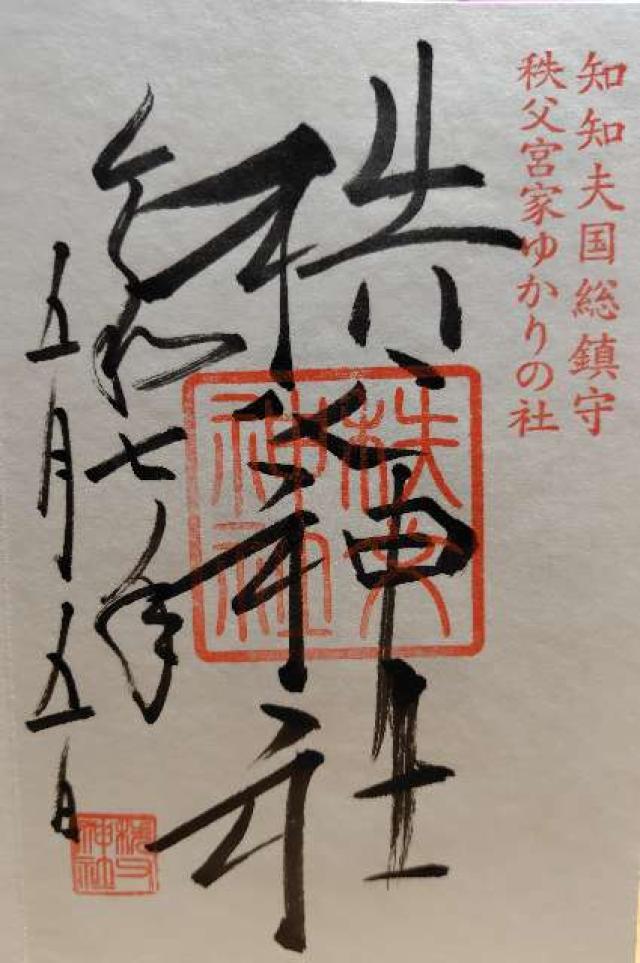 知知夫国総鎮守
秩父宮家ゆかりの社
秩父神社
秩父神社
令和七年
五月五日
秩父神社